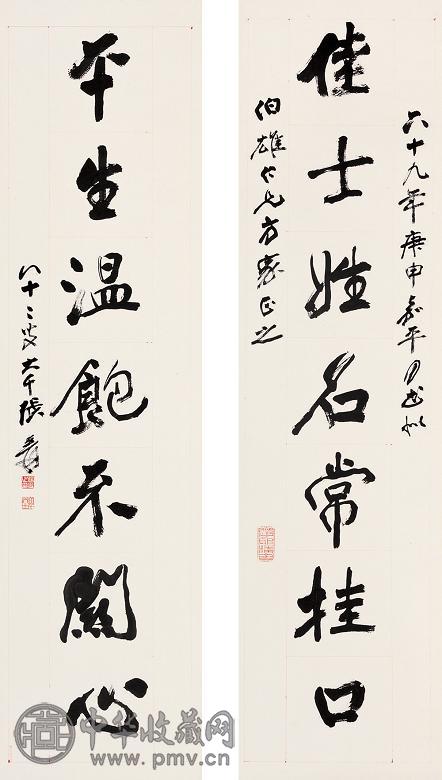 佳士姓名常挂口
六十九年庚申嘉平月書似
伯雄仁兄方家正之
平生温飽不關心
八十二叟大千張爰
中华收藏网
www.pmv.cn